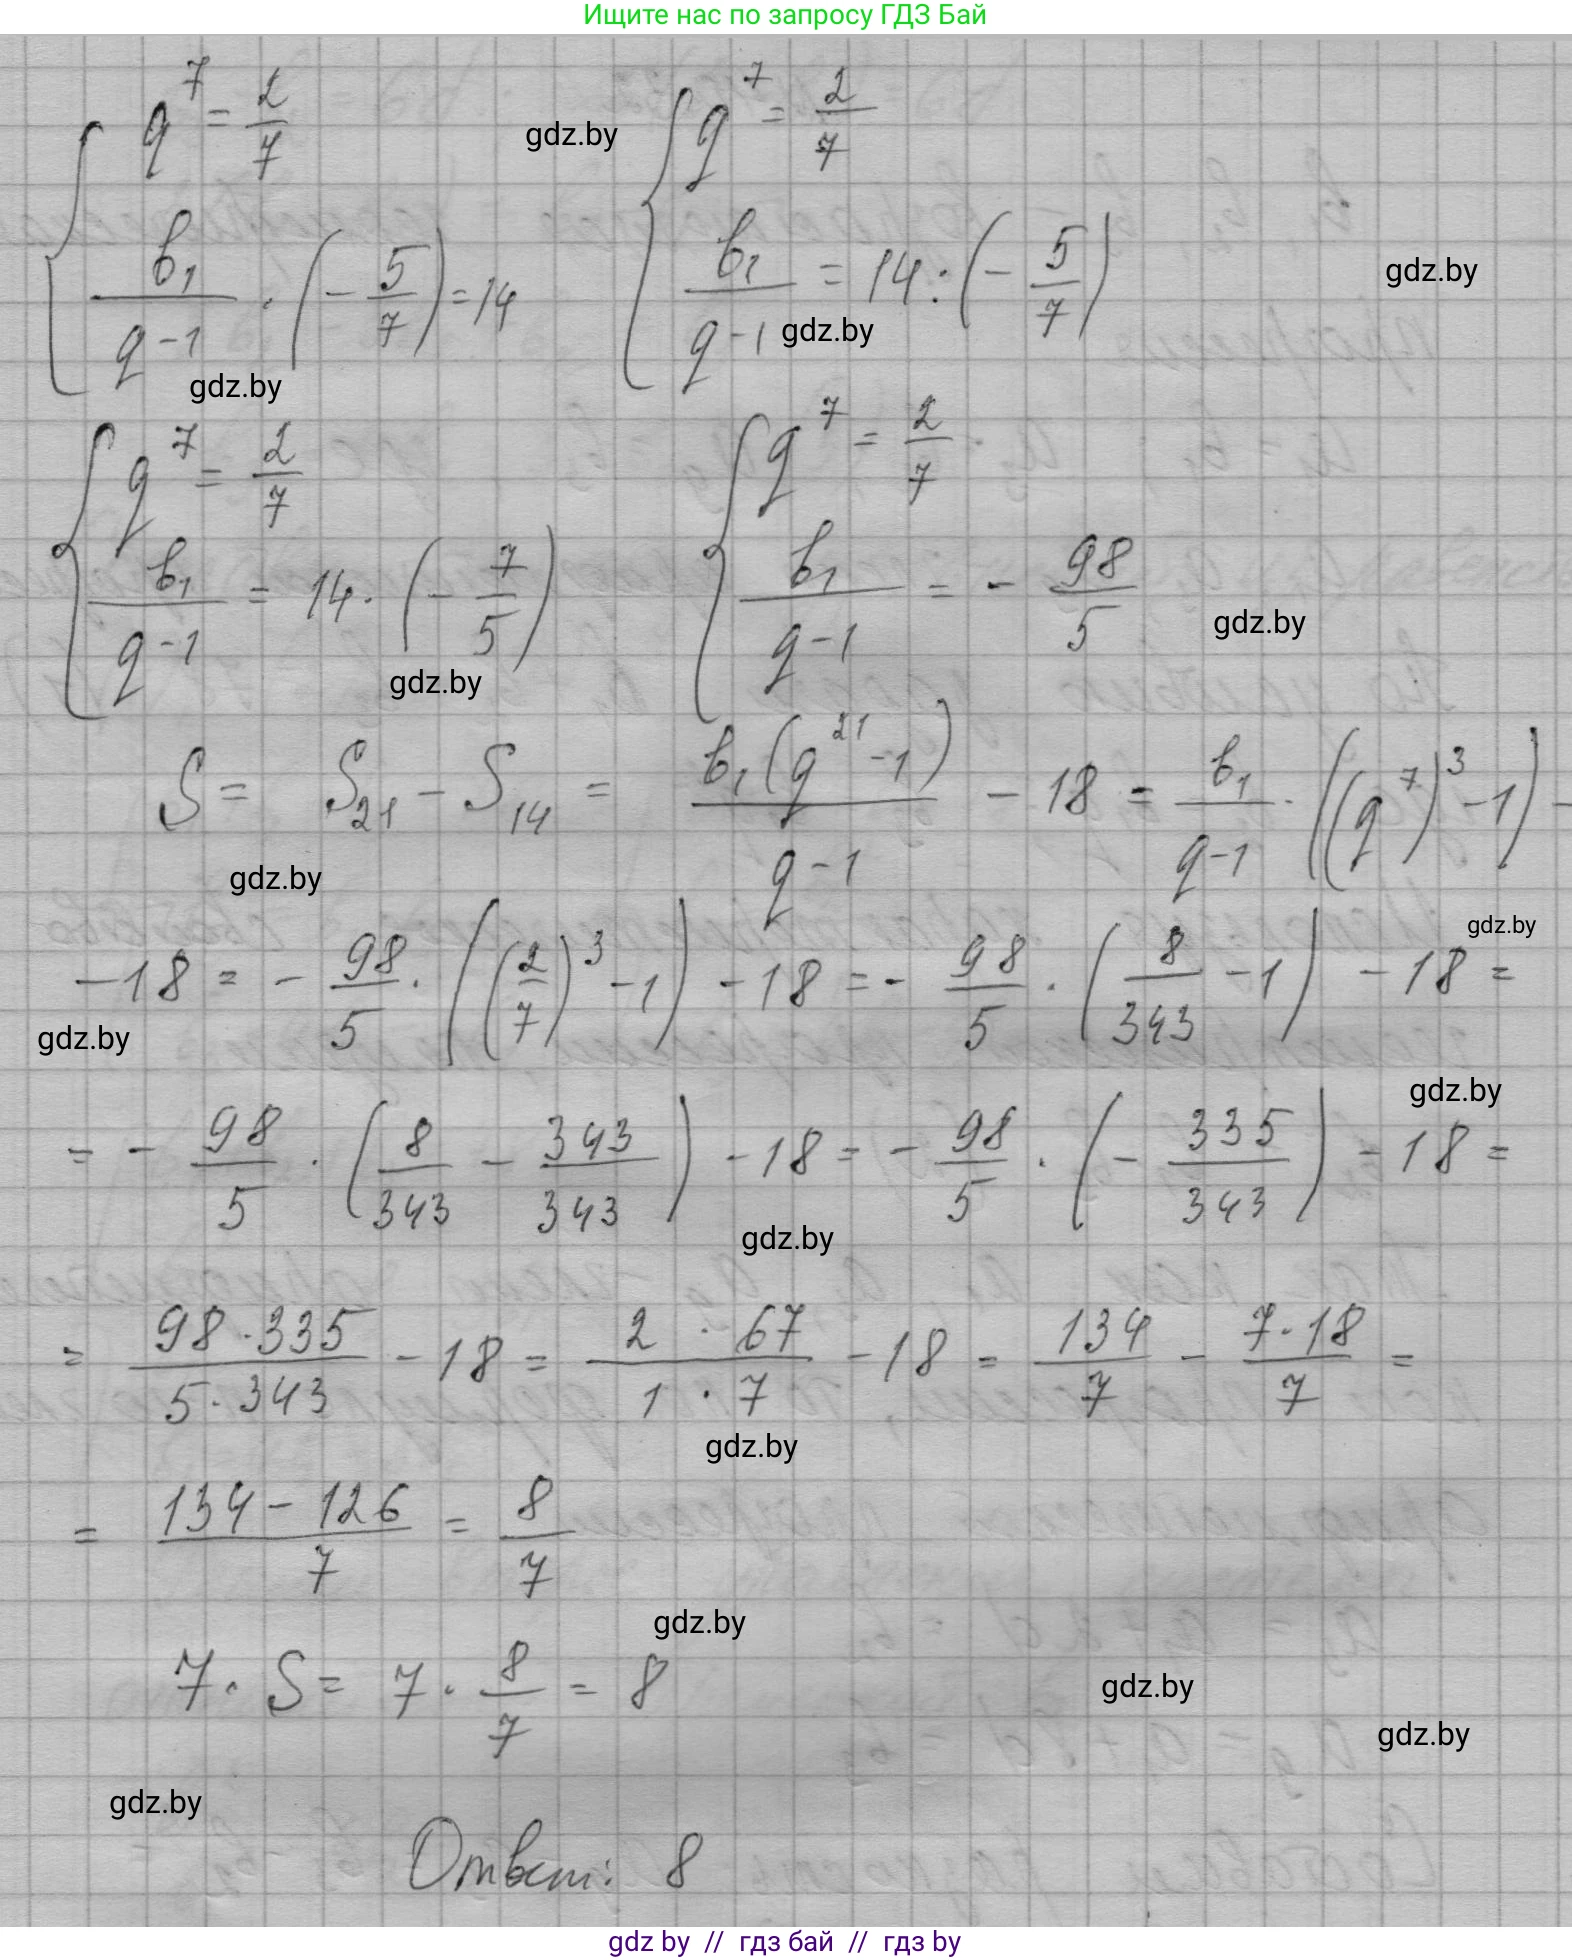 Ищите нас по запросу ГДЗ Бай
q^7 = 2/7   q^7 = 2/7
gdz.by
b₁/(q-1) · (-5/7) = 14   b₁/(q-1) = 14 : (-5/7)
gdz.by
gdz.by
gdz.by
q^7 = 2/7   q^7 = 2/7
b₁/(q-1) = 14 · (-7/5)   b₁/(q-1) = - 98/5
gdz.by
gdz.by
S = S₂₁ - S₁₄ = b₁(q^21 - 1)/(q-1) - 18 = b₁/(q-1) · ((q^7)^3 - 1) -
gdz.by
gdz.by
-18 = - 98/5 · ((2/7)^3 - 1) - 18 = - 98/5 · (8/343 - 1) - 18 =
gdz.by
gdz.by
= - 98/5 · (8/343 - 343/343) - 18 = - 98/5 · (- 335/343) - 18 =
gdz.by
= 98·335/5·343 - 18 = 2·67/1·7 - 18 = 134/7 - 7·18/7 =
gdz.by
= 134-126/7 = 8/7
gdz.by
7 · S = 7 · 8/7 = 8
gdz.by
gdz.by
gdz.by
Ответ: 8
gdz by // гдз бай // гдз by